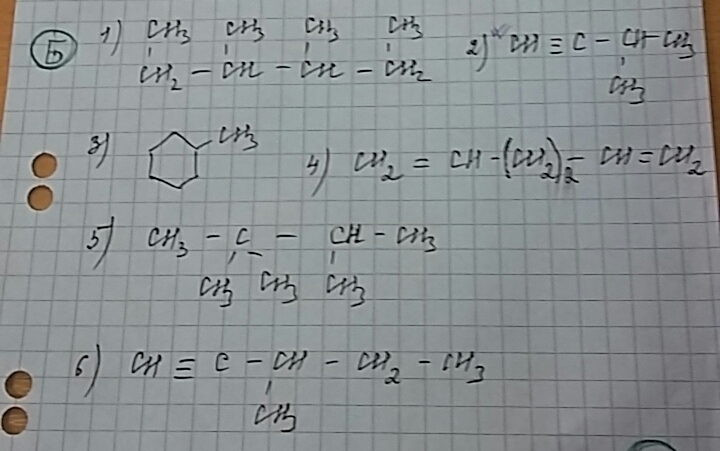 Б 1) CH3 CH3 CH3 CH3
CH2 – CH – CH – CH2
2) CH ≡ C – CH – CH3
CH3
3) CH3
4) CH2 = CH – (CH2)2 – CH = CH2
5) CH3 – C – CH – CH3
CH3 CH3 CH3
6) CH ≡ C – CH – CH2 – CH3
CH3